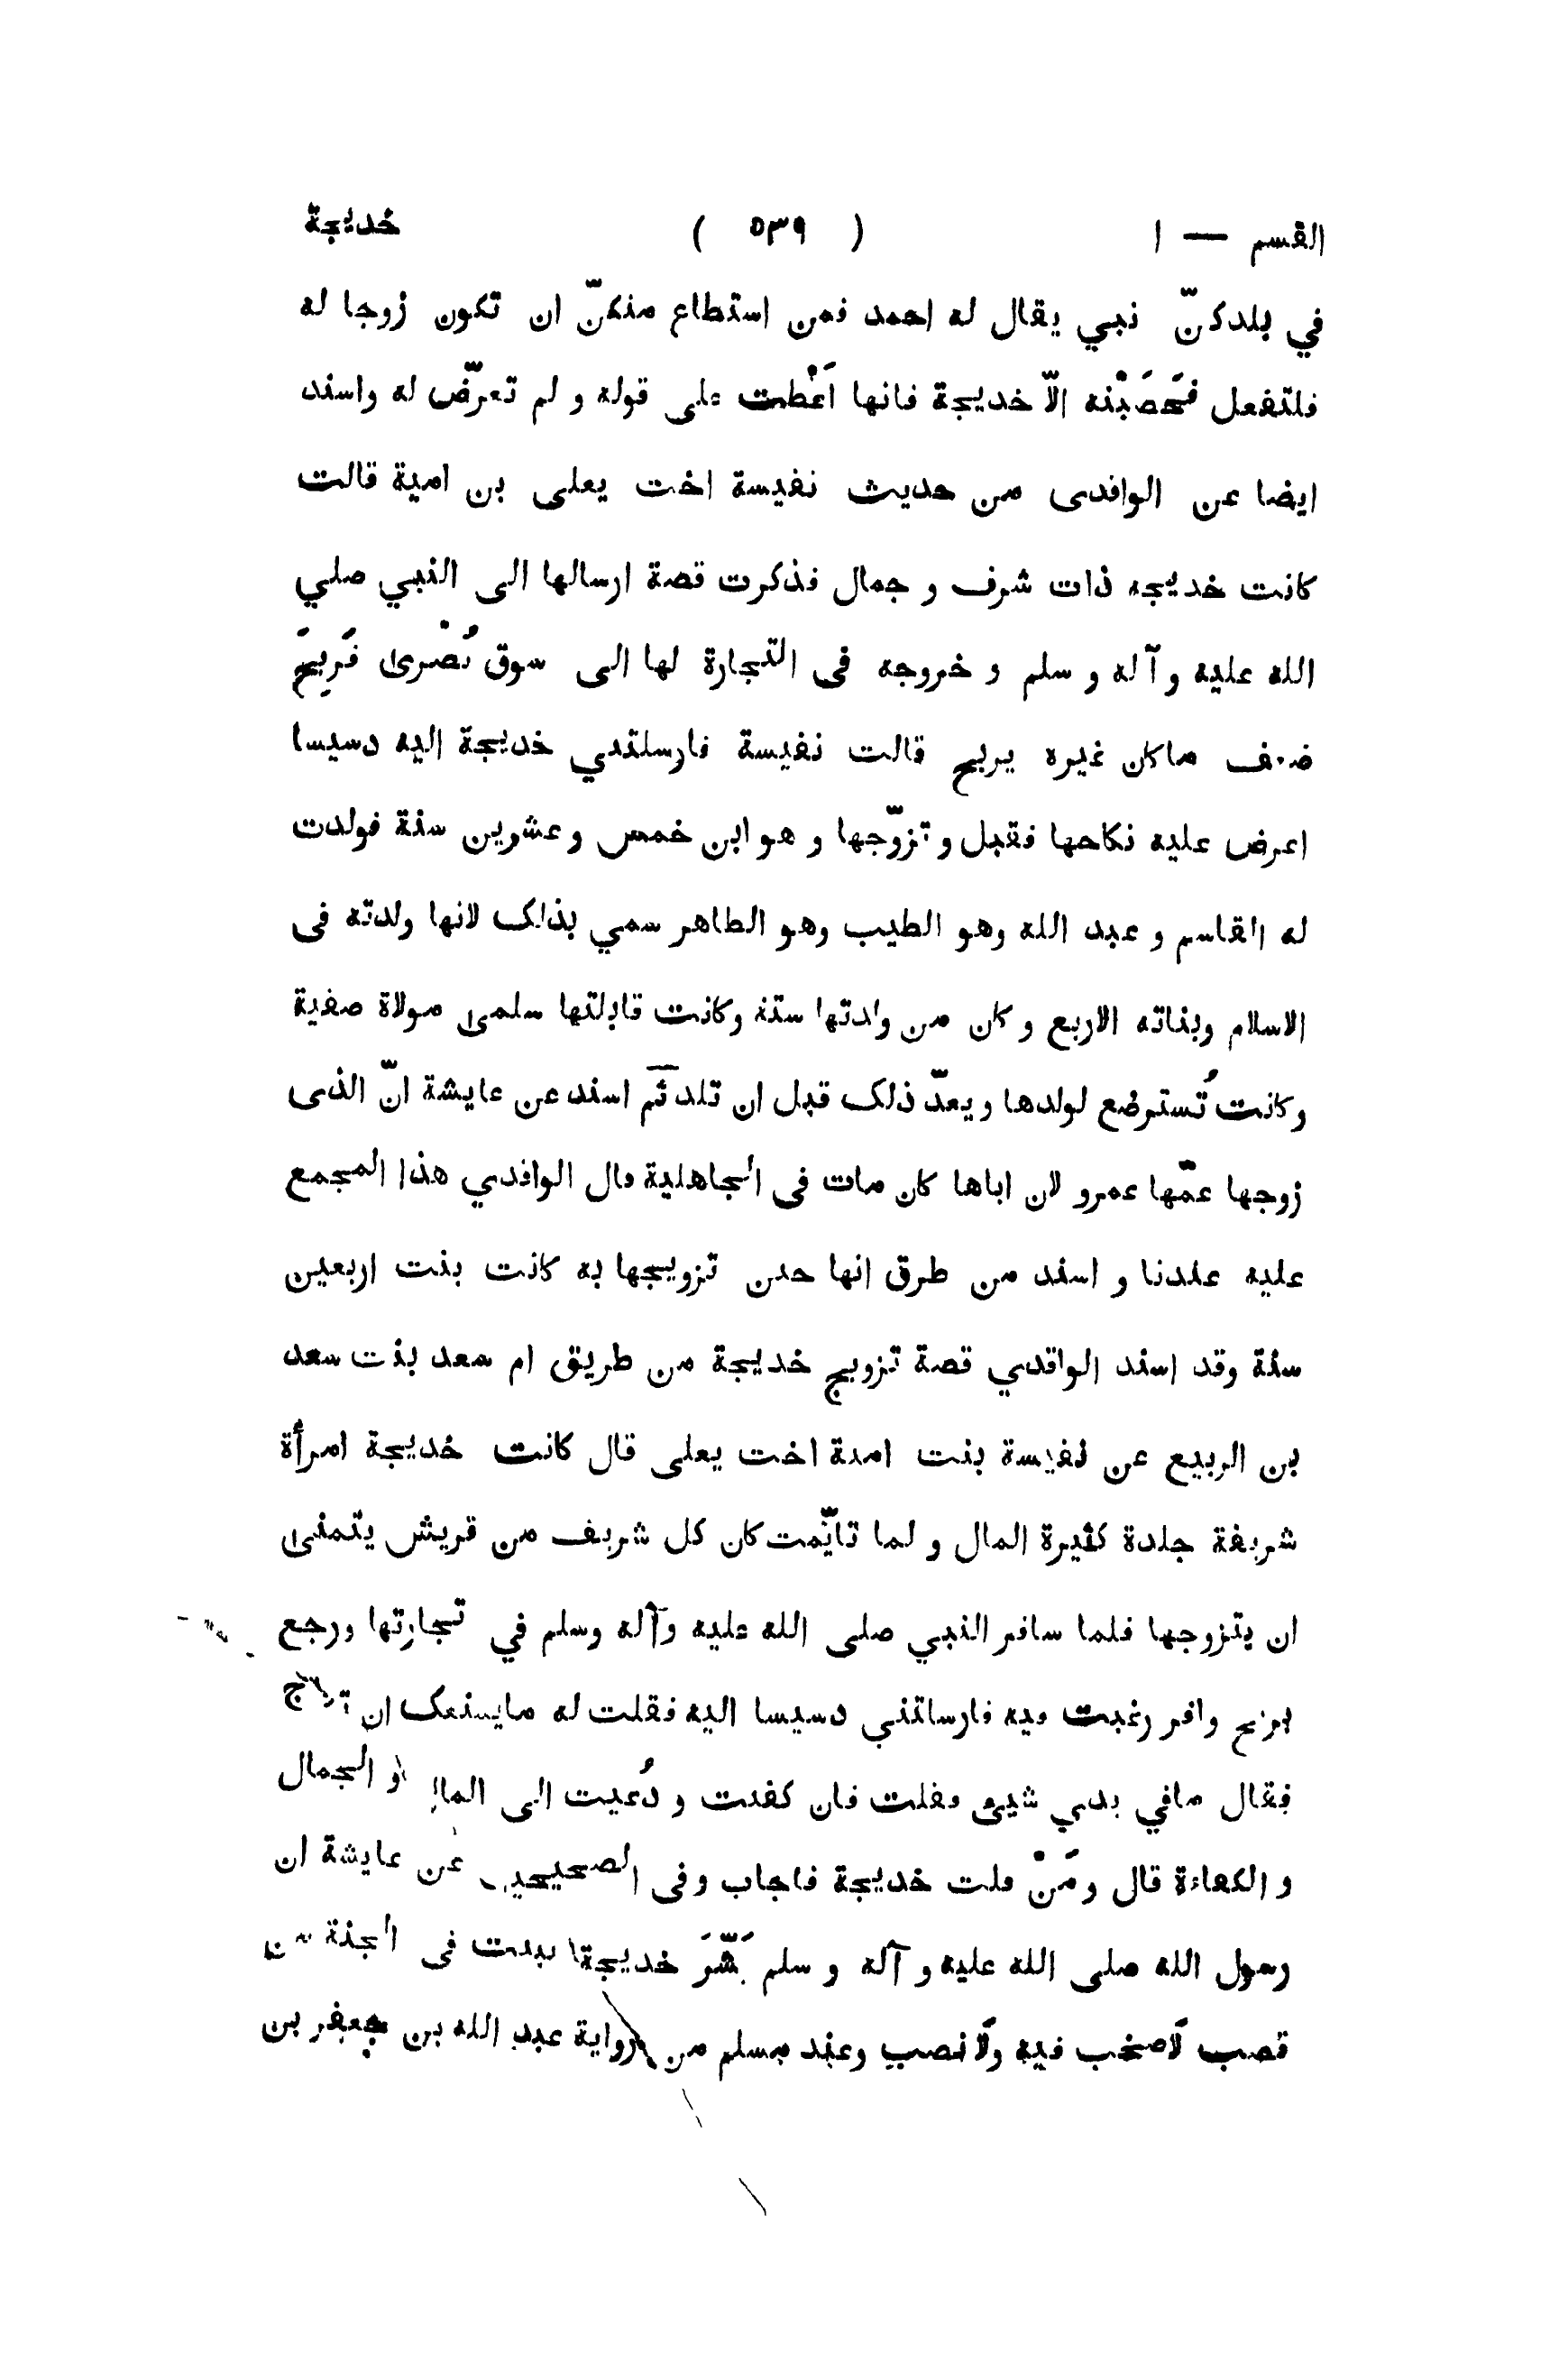 القسم — ١ ( ٥٣٩ ) خديجة
في بلدكنّ نبي يقال له احمد فمن استطاع منكنّ ان تكون زوجا له
فلتفعل فحَصَبْنه الاّ خديجة فانها اَغْضت على قوله و لم تعرّض له واسند
ايضا عن الواقدى من حديث نفيسة اخت يعلى بن امية قالت
كانت خديجه ذات شرف و جمال فذكرت قصة ارسالها الى النبي صلي
الله عليه وآله و سلم و خروجه فى التجارة لها الى سوق بُصْرى فَرِبحَ
ضعف ماكان غيره يربح قالت نفيسة فارسلتني خديجة اليه دسيسا
اعرض عليه نكاحها فقبل وتزوّجها و هو ابن خمس وعشرين سنة فولدت
له القاسم و عبد الله وهو الطيب وهو الطاهر سمي بذلك لانها ولدته فى
الاسلام وبناته الاربع و كان من ولدتها ستة وكانت قابلتها سلمى مولاة صفية
وكانت تُسترضع لولدها ويعدّ ذلك قبل ان تلد ثم اسند عن عايشة انّ الذى
زوجها عمّها عمرو لان اباها كان مات فى الجاهلية قال الواقدي هذا المجمع
عليه عندنا و اسند من طرق انها حين تزويجها به كانت بنت اربعين
سنة وقد اسند الواقدي قصة تزويج خديجة من طريق ام سعد بنت سعد
بن الربيع عن نفيسة بنت امية اخت يعلى قال كانت خديجة امرأة
شريفة جلدة كثيرة المال و لما تأيّمت كان كل شريف من قريش يتمنى
ان يتزوجها فلما سافر النبي صلى الله عليه وآله وسلم في تجارتها ورجع
بربح وافر رغبت فيه فارسلتني دسيسا اليه فقلت له مايمنعك ان
فقال مافي يدي شيئ فقلت فان كفيت و دُعيت الى المال و الجمال
و الكفاءة قال ومَنْ قلت خديجة فاجاب وفى الصحيحين عن عايشة ان
رسول الله صلى الله عليه و آله و سلم بَشّرَ خديجة ببيت فى الجنة من
قصب لاصخب فيه ولا نصب وعند مسلم من رواية عبد الله بن جعفر بن